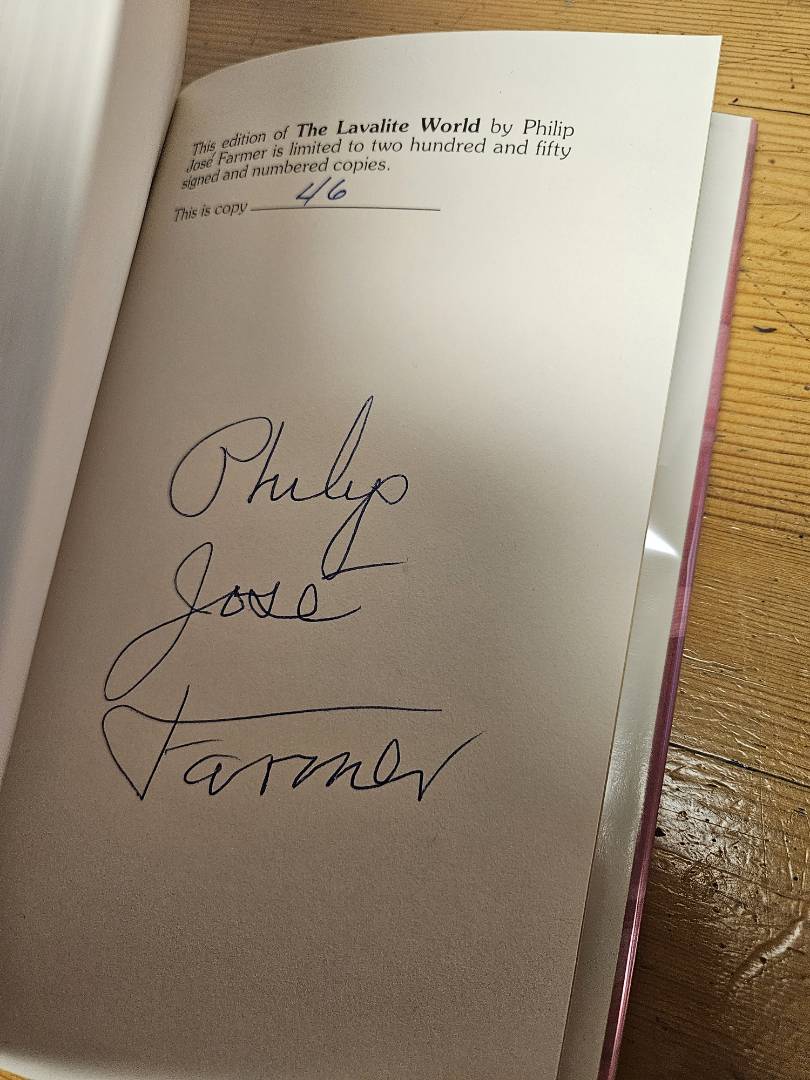 This edition of The Lavalite World by Philip
José Farmer is limited to two hundred and fifty
signed and numbered copies.
This is copy 46
Philip
José
Farmer